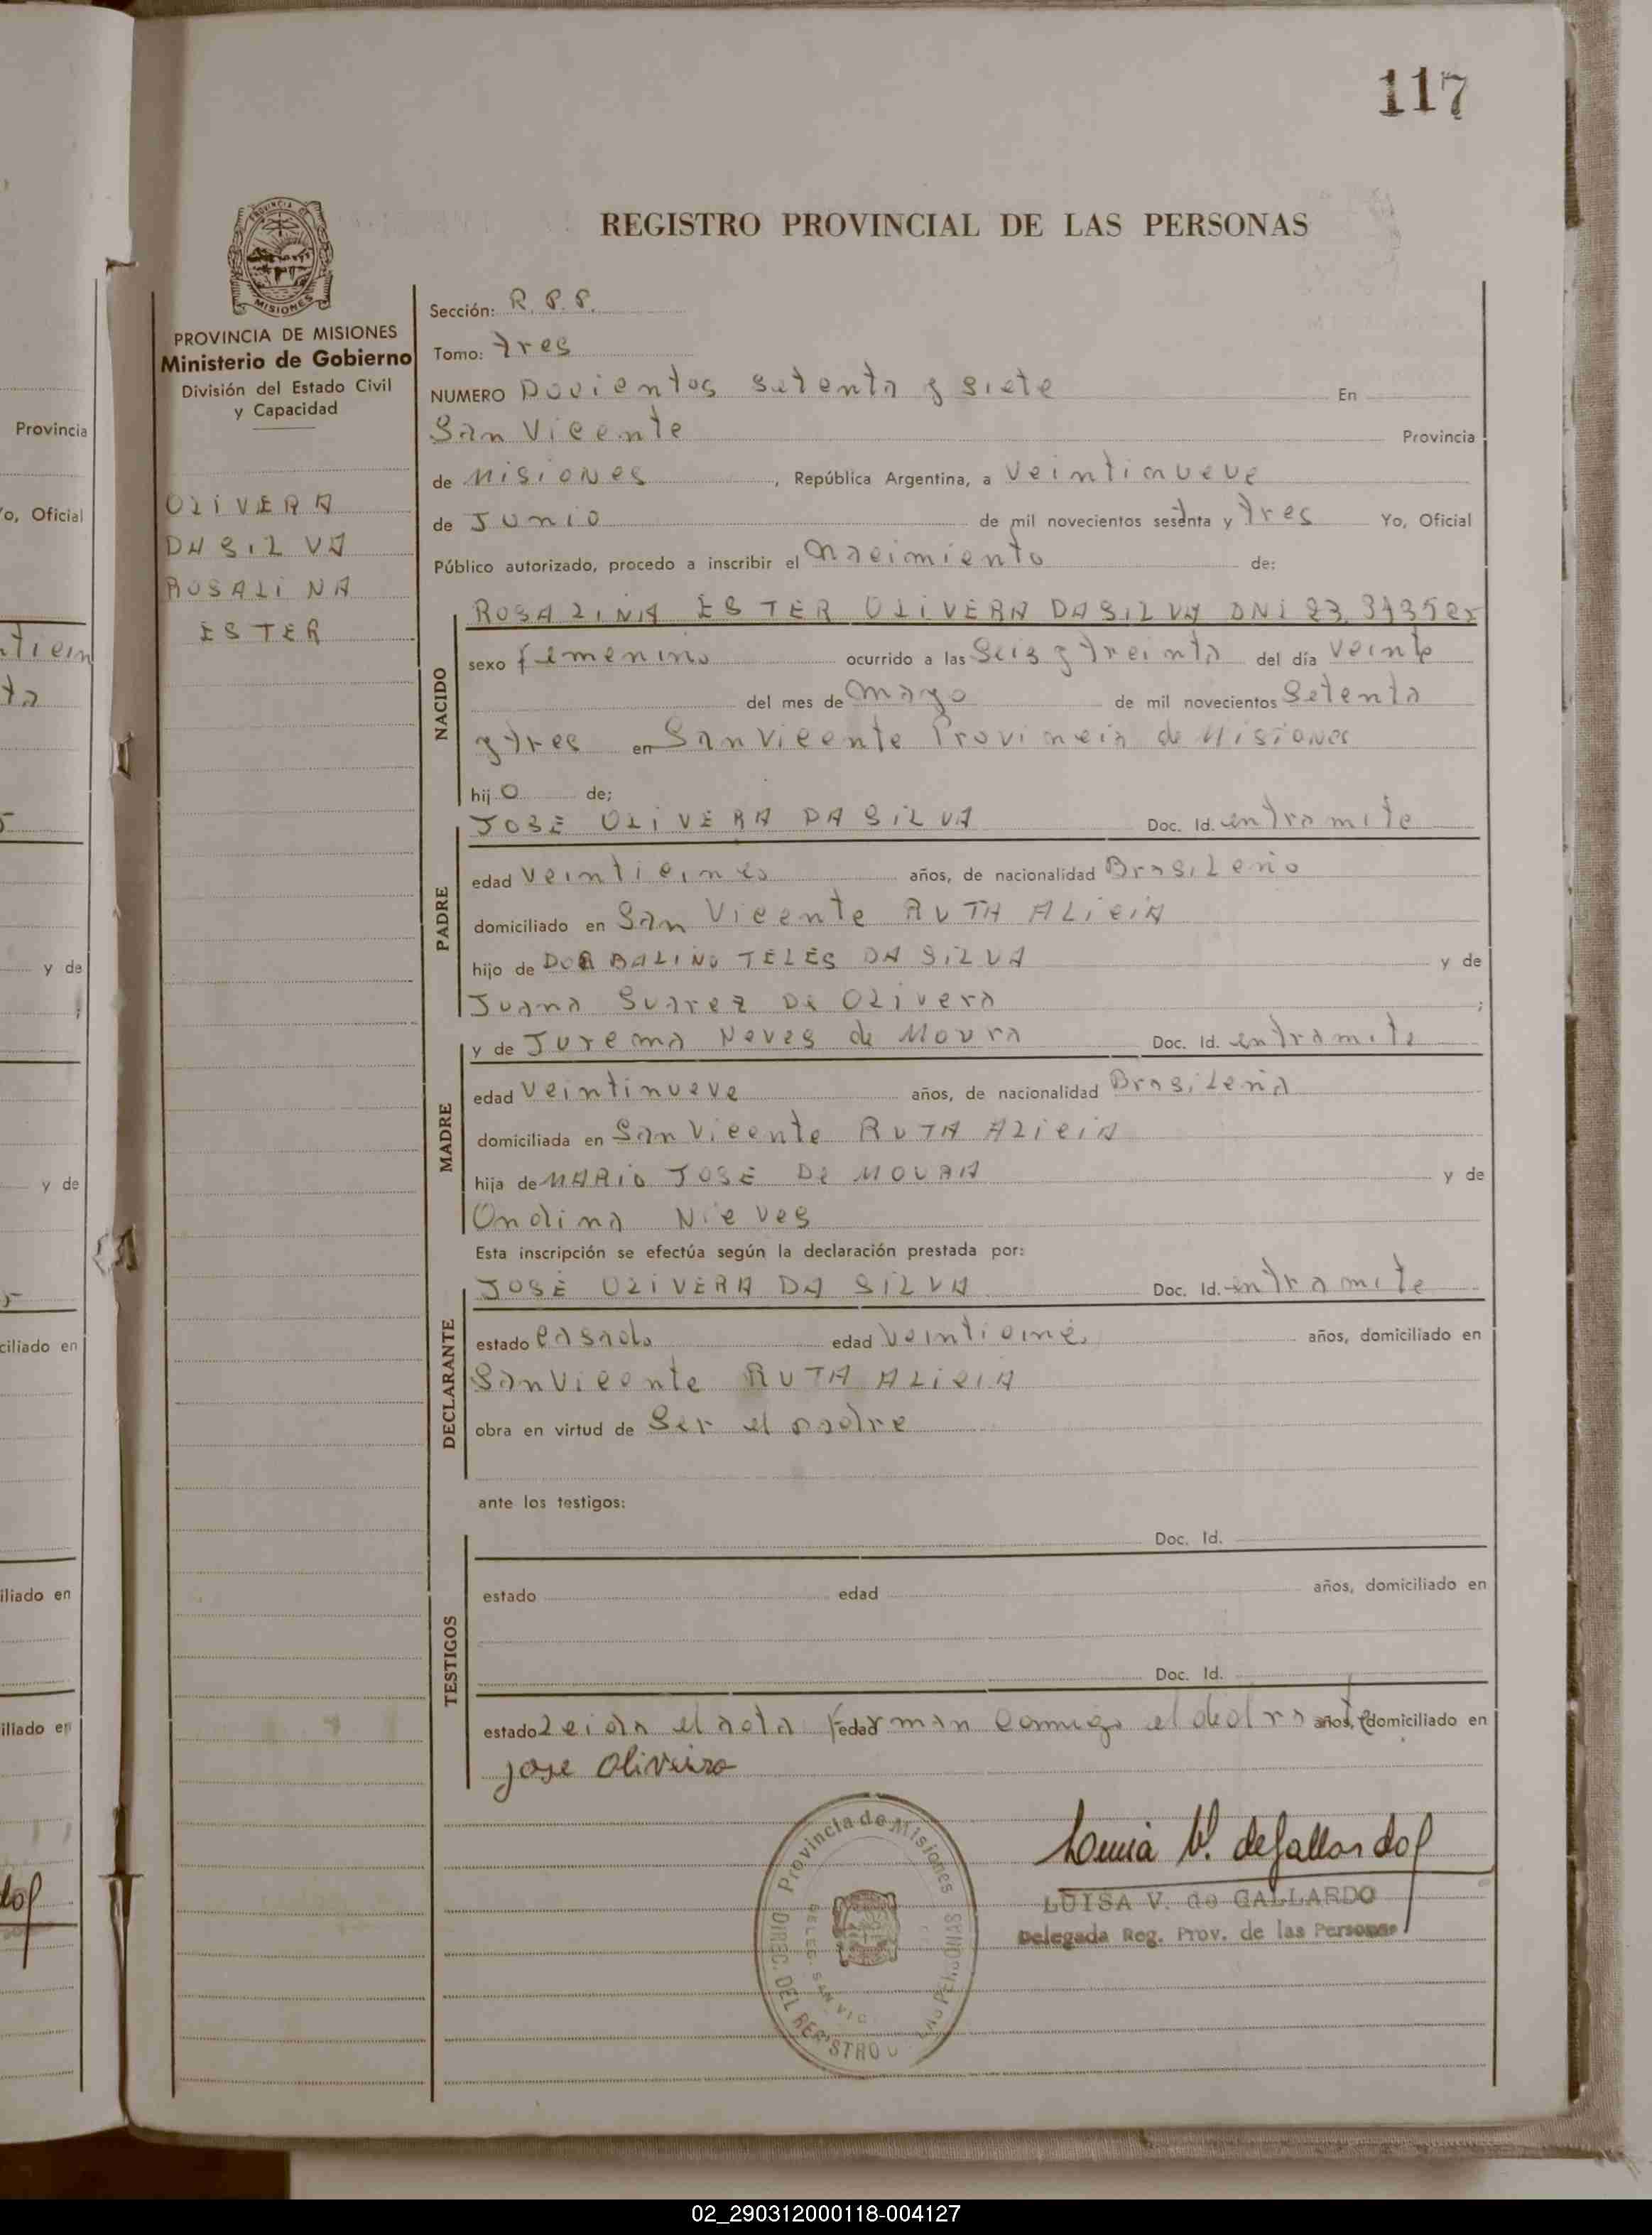 117
REGISTRO PROVINCIAL DE LAS PERSONAS
PROVINCIA DE
MISIONES
PROVINCIA DE MISIONES
Ministerio de Gobierno
División del Estado Civil
y Capacidad
OLIVERA
DA SILVA
ROSALINA
ESTER
Sección: R.P.P.
Tomo: tres
NUMERO Docientos setenta y siete En
San Vicente Provincia
de Misiones, República Argentina, a veintinueve
de Junio de mil novecientos setenta y tres Yo, Oficial
Público autorizado, procedo a inscribir el nacimiento de:
NACIDO
ROSALINA ESTER OLIVERA DA SILVA DNI 23.
sexo femenino ocurrido a las Seis y treinta del día veinte
del mes de mayo de mil novecientos Setenta
y tres en San Vicente Provincia de Misiones
hijo de;
PADRE
JOSE OLIVERA DA SILVA Doc. Id. en tramite
edad veinticinco años, de nacionalidad Brasileño
domiciliado en San Vicente RUTA ALICIA
hijo de DORBALINO TELES DA SILVA y de
Juana Suarez De Olivera ;
MADRE
y de Jurema Neves de Moura Doc. Id. en tramite
edad veintinueve años, de nacionalidad Brasileña
domiciliada en San Vicente RUTA ALICIA
hija de MARIO JOSE DE MOURA y de
Ondina Nieves
Esta inscripción se efectúa según la declaración prestada por:
DECLARANTE
JOSE OLIVERA DA SILVA Doc. Id. en tramite
estado casado edad años, domiciliado en
San Vicente RUTA ALICIA
obra en virtud de Ser el padre
ante los testigos:
TESTIGOS
Doc. Id.
estado edad años, domiciliado en
Doc. Id.
estado Leida el acta edad conmigo el años, domiciliado en
Jose Oliveira
Provincia de Misiones
DIREC. DEL REGISTRO
PERSONAS
DELEG. SAN VIC
Luisa V. de Gallardo
LUISA V. de GALLARDO
Delegada Reg. Prov. de las Personas
Provincia
Yo, Oficial
y de
y de
ciliado en
iliado en
iliado en
02_290312000118-004127